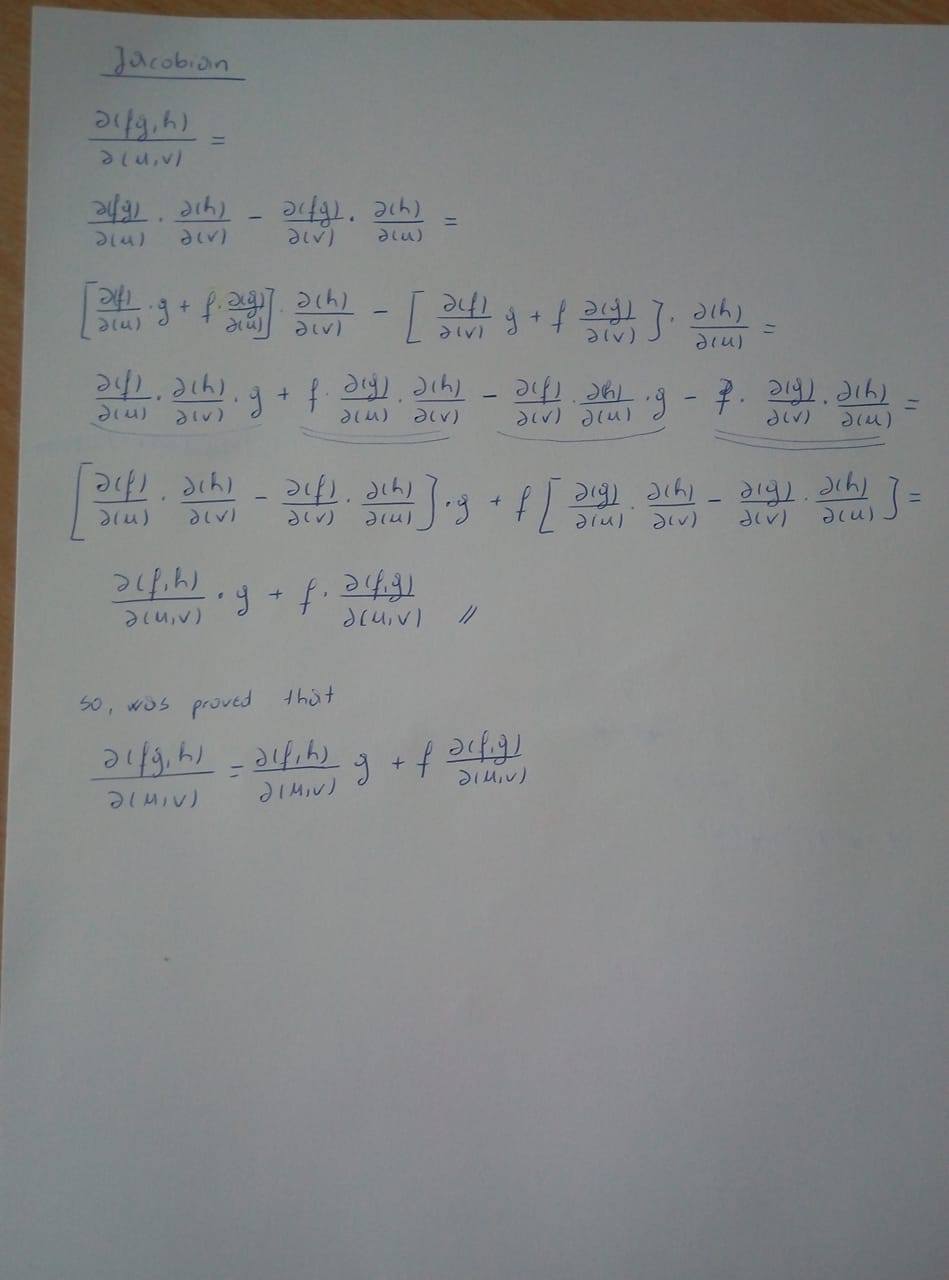 Jacobian
∂(fg,h)/∂(u,v) =
∂(fg)/∂(u) · ∂(h)/∂(v) − ∂(fg)/∂(v) · ∂(h)/∂(u) =
[∂(f)/∂(u) · g + f · ∂(g)/∂(u)] · ∂(h)/∂(v) − [∂(f)/∂(v) g + f ∂(g)/∂(v)] · ∂(h)/∂(u) =
∂(f)/∂(u) · ∂(h)/∂(v) · g + f · ∂(g)/∂(u) · ∂(h)/∂(v) − ∂(f)/∂(v) · ∂(h)/∂(u) · g − f · ∂(g)/∂(v) · ∂(h)/∂(u) =
[∂(f)/∂(u) · ∂(h)/∂(v) − ∂(f)/∂(v) · ∂(h)/∂(u)] · g + f [∂(g)/∂(u) · ∂(h)/∂(v) − ∂(g)/∂(v) · ∂(h)/∂(u)] =
∂(f,h)/∂(u,v) · g + f · ∂(f,g)/∂(u,v) //
so, was proved that
∂(fg,h)/∂(u,v) = ∂(f,h)/∂(u,v) g + f ∂(f,g)/∂(u,v)